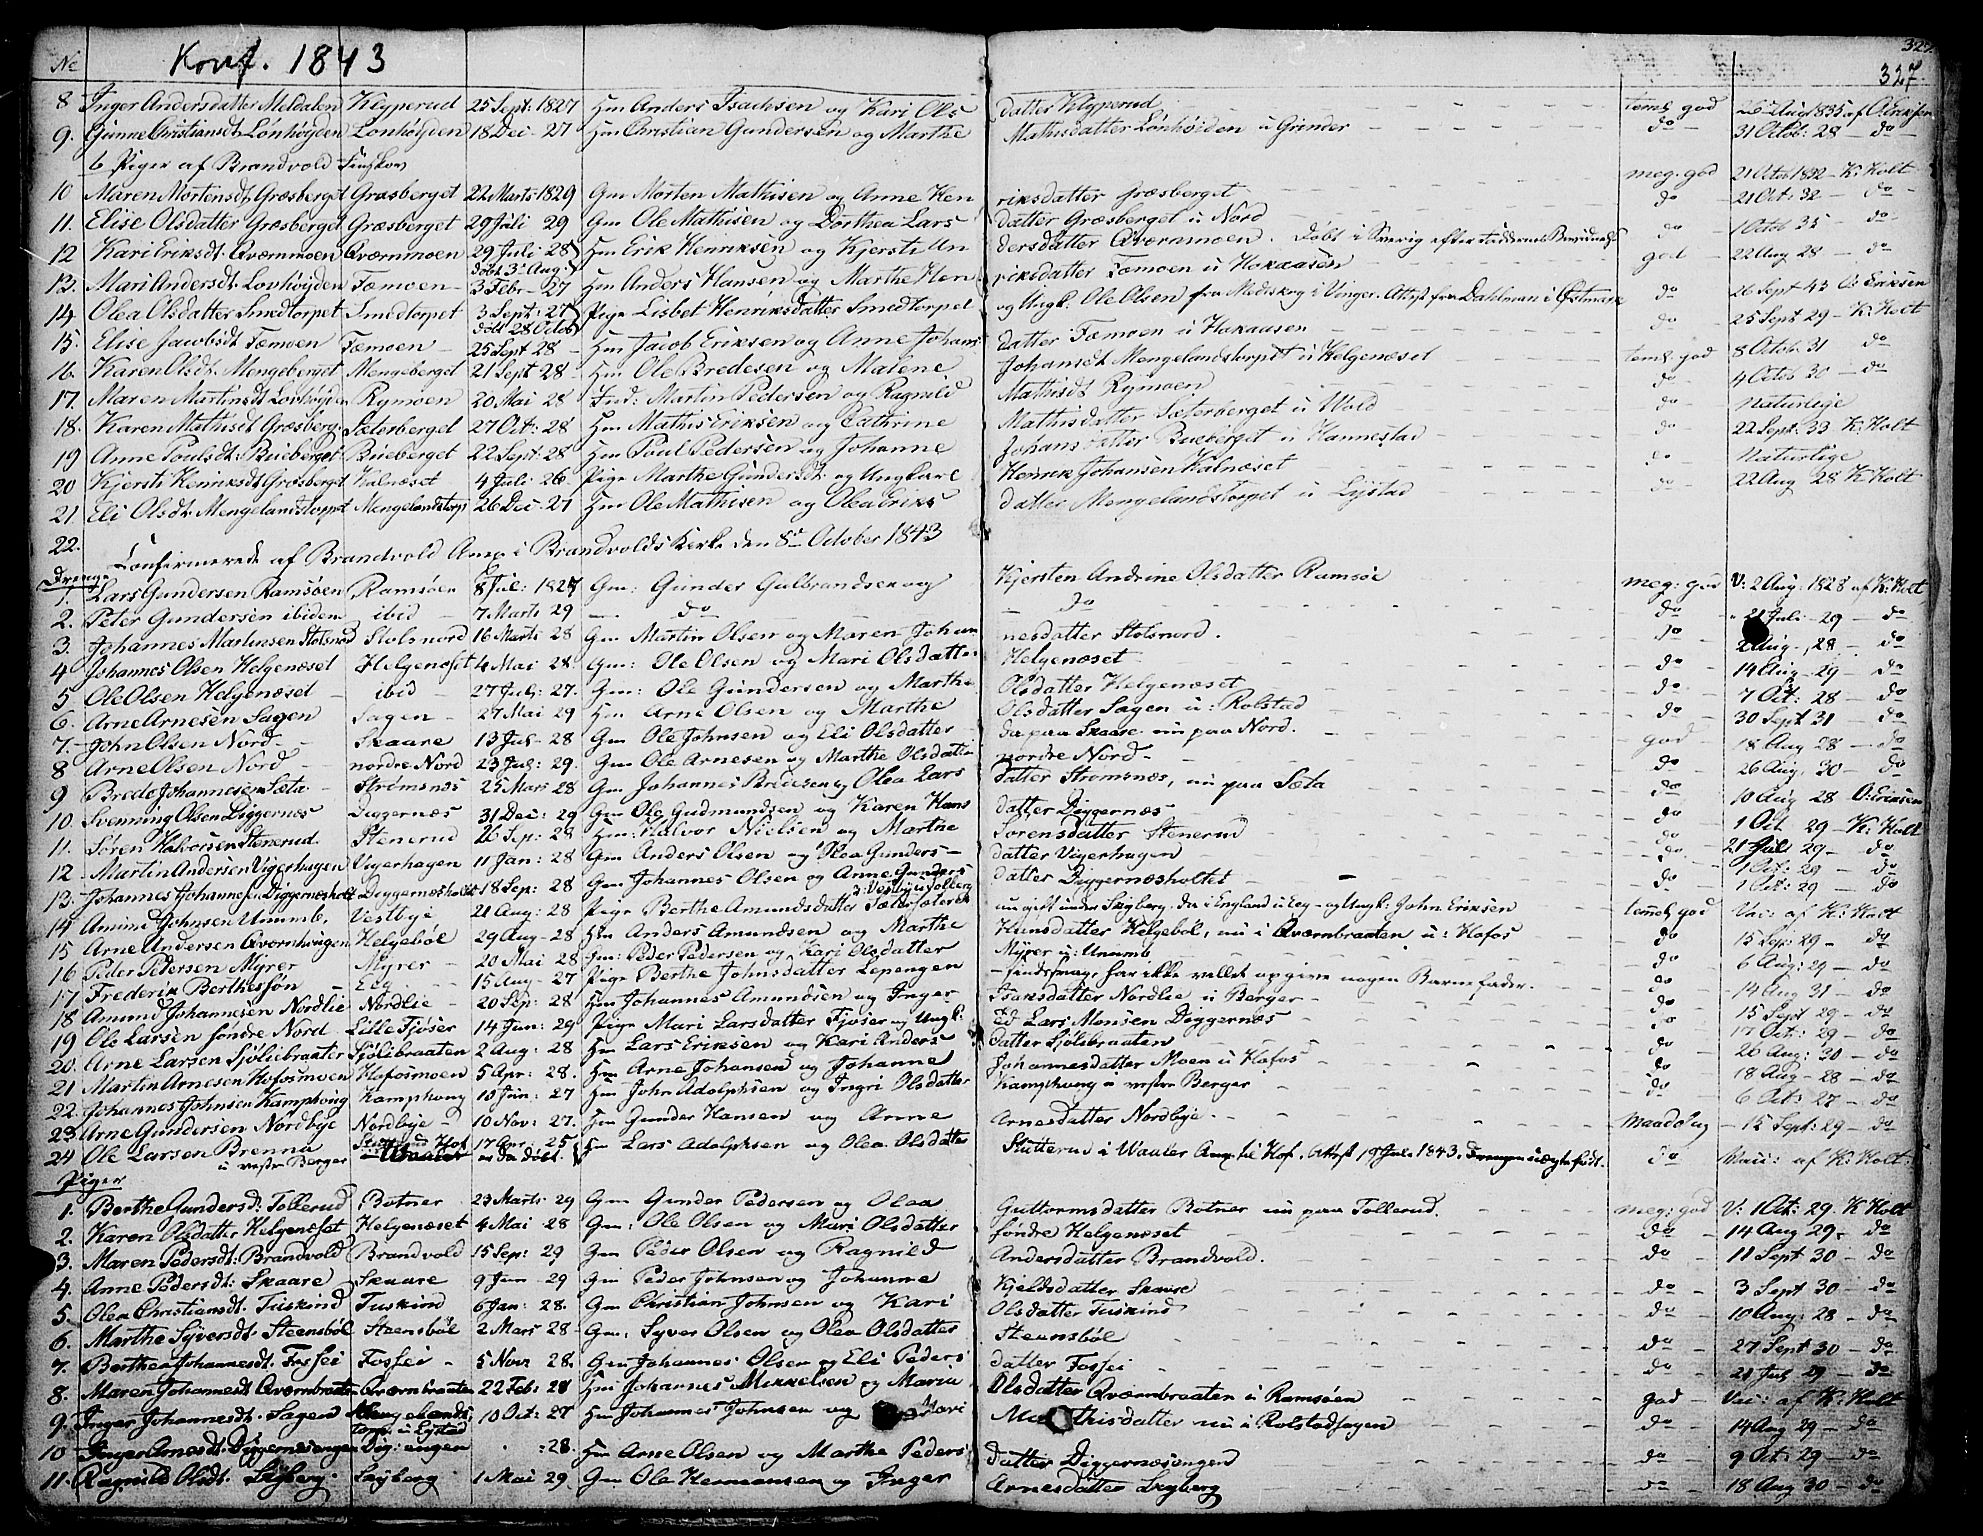 Konf. 1843
327
No
8 Inger Andersdatter Meldalen Klyperud 25 Sept: 1827 Hm Anders Isachsen og Kari Ols datter Klyperud teml: god 26 Aug 1835 af O: Eriksen
9. Gunne Christiansdt. Lönhöyden Lonhöyden 18 Dec - 27 Hm Christian Gundersen og Marthe Mathisdatter Lönhöiden u Grinder do 31 Octob: 28 - do
6 Piger af Brandvold Finskov
10 Maren Mortensdt. Græsberget Græsberget 22 Marts 1829 Gm Morten Mathisen og Anne Hen riksdatter Græsberget meg. god 21 Octob 1832 - K: Holt
11. Elise Olsdatter Græsberget Græsberget 29 Juli 29 Gm Ole Mathisen og Dorthea Lars datter Græsberget u Nord do 21 Oct: 32 - do
12 Kari Eriksdt. Qværnmoen Qværnmoen 29 Juli 28 döbt 3 Aug: Hm Erik Henriksen og Kjersti An dersdatter Qværnmoen. Döbt i Sverig efter Fadderens do 1 Octob 35 - do
13. Mari Andersdt. Lovhöyden Tæmoen 3 Febr - 27 Hm Anders Hansen og Marthe Hen riksdatter Tæmoen u Hokaasen god 22 Aug 28 - do
14. Olea Olsdatter Smedtorpet Smedtorpet 3 Sept: 27 döbt 28 Octob Pige Lisbet Henriksdatter Smedtorpet og Ungk. Ole Olsen fra Medskog i Vinger. Attest fra Dahlman i Östmark do 26 Sept 43 O: Eriksen
15. Elise Jacobsdt Tæmoen Tæmoen 25 Sept 28 Hm Jacob Eriksen og Anne Johans datter Tæmoen u Hokaasen do 25 Sept 29 - K: Holt
16. Karen Olsdt. Mengeberget Mengeberget 21 Sept 28 Hm Ole Bredesen og Malene Johansdt Mengelandstorpet u Helgenæset teml: god 8 Octob. 31 do
17. Maren Martinsdt Lovhöyden Rymoen 20 Mai 28 Ind: Martin Pedersen og Ragnild Mathisdt Rymoen do 4 Octob 30 - do
18. Karen Mathisdt Græsberg. Sæterberget 27 Oct: 28 Hm Mathis Eriksen og Cathrine Mathisdatter Sæterberget u Wold do Naturlige
19 Anne Poulsdt: Bueberget Bueberget 22 Sept 28 Hm Poul Pedersen og Johanne Johansdatter Bueberget u Hannestad do 22 Sept: 33 K: Holt
20 Kjersti Henriksdt Græsberget Kalnæset 4 Juli 26 Pige Marthe Gundersdt og Ungkarl Henrik Johansen Kalnæset do Naturlige
21. Eli Olsdt. Mengelandstorpet Mengelandstorp 26 Dec - 27 Hm Ole Mathisen og Olea Eriks datter Mengelandstorpet u Lystad do 22 Aug 28 K: Holt
22.
Confirmerede af Brandvold Anex i Brandvolds Kirke den 8de October 1843
Drenge
1. Lars Gundersen Ramsöen Ramsöen 8 Jul: 1827 Gm: Gunder Gulbrandsen og Kjersten Andrine Olsdatter Ramsöe meg: god V: 2 Aug: 1828 af K: Holt
2. Peter Gundersen ibidem ibid 7 Marts 29 do do do 21 Juli - 29 - do
3. Johannes Martinsen Stolsnord Stolsnord 16 Marts 28 Gm Martin Olsen og Maren Johan nesdatter Stolsnord. do 2 Aug - 28 - do
4 Johannes Olsen Helgenæset Helgenæset 4 Mai 28 Gm: Ole Olsen og Mari Olsdatter Helgenæset do 14 Aug - 29 - do
5 Ole Olsen Helgenæset ibid - 27 Jul: 27. Gm: Ole Gundersen og Marthe Olsdatter Helgenæset do 7 Oct: 28 - do
6. Arne Arnesen Sagen Sagen - 27 Mai 29 Hm Arne Olsen og Marthe Olsdatter Sagen u: Rolstad do 30 Sept 31 - do
7. John Olsen Nord - Skaare 13 Jul - 28 Gm Ole Johnsen og Eli Olsdatter da paa Skaare nu paa Nord. god 18 Aug 28 - do
8 Arne Olsen Nord nordre Nord 23 Jul: 29. Gm Ole Arnesen og Marthe Olsdatter nordre Nord - do 26 Aug. 30 - do
9 Brede Johannesen Sæta Strömsnes 25 Mars 28 Gm Johannes Bredesen og Olea Lars datter Stromsnæs, nu paa Sæta do 10 Aug 28 O: Eriksen
10. Svenning Olsen Diggernes Diggernæs 31 Dec: 29 Gm Ole Gudmundsen og Karen Hans datter Diggernæs do 1 Oct 29 - K: Holt
11. Sören Halvorsen Stenerud Stenerud 26 Sep: 28 Hm: Halvor Nielsen og Marthe Sörensdatter Stenerud do 21 Jul 29 - do
12 Martin Andersen Vigerhagen Vigerhagen 11 Jan: 28 Gm Anders Olsen og Olea Gunders - datter Vigerhagen do 1 Oct: 29 - do
13. Johannes Johannes: Diggernæsholt Diggernæsholt 18 Sep: 28 Gm Johannes Olsen og Anne Gunders datter Diggernæsholtet do 1 Oct: 29 - do
14 Amund Johnsen Ummb. Vestbye 21 Aug: 28 Pige Berthe Amundsdatter ungift under Skyberg. Da i England u Eeg - og Ungk: John Eriksen temel: god Vac: af K: Holt
15 Arne Andersen Qvernhougen Helgeböl 29 Aug - 28 Hm Anders Amundsen og Marthe Hansdatter Helgeböl, nu i Qværnbraaten u: Hofos do 15 Sep: 29 - do
16 Peder Pedersen Myrer Myrer - 20 Mai 28 Hm: Peder Pedersen og Kari Olsdatter Myrer u: Ummb. do 6 Aug: 29 - do
17 Frederik Berthesjön Eeg - 15 Aug - 27 Pige Berthe Johnsdatter Lepengen Findesmag, har ikke villet opgive nogen Barnefader. do 14 Aug 31 - do
18 Amund Johannesen Nordlie Nordlie - 20 Sep: 28 Hm Johannes Amundsen og Inger Isaksdatter Nordlie u Berger - do 15 Sept 29 - do
19 Ole Larsen söndre Nord Lille Fjöser 14 Jan: 29 Pige Mari Larsdatter Fjöser og Ungk: Lars Monsen Diggernæs do 17 Oct: 29 - do
20. Arne Larsen Sjöliebraaten Sjölibraaten 2 Aug: 28 Hm Lars Eriksen og Kari Anders datter Sjölibraaten do 26 Aug: 30 - do
21 Martin Arnesen Hofosmoen Hofosmoen 5 Apr: 28. Hm Arne Johansen og Johanne Johannesdatter Moen u Hofos do 18 Aug - 28 - do
22. Johannes Johnsen Kamphoug Kamphoug 10 Jun: 27 Hm John Adolphsen og Ingri Olsdatter Kamphoug u vestre Berger do 6 Oct: 27 - do
23 Arne Gundersen Nordbye Nordbye - 10 Nov: 27. Hm Gunder Hansen og Anne Arnesdatter Nordbye. Maadelig 15 Sept: 29 - do
24 Ole Larsen Brenna u vestre Berger Waaler 17 Apr: 25 Hm Lars Adolphsen og Olea Olsdatter Stutterud i Waaler Anx til Hof. Attest 19 Jul: 1843. Drengen uægte födt. do Vacc: af K: Holt
Piger
1. Berthe Gundersd: Tollerud Botner 23 Marts 29 Gm Gunder Pedersen og Olea Guttormsdatter Botner nu paa Tollerud. meg: god V: 1 Oct: 29. K Holt
2. Karen Olsdatter Helgenæset Helgenæset 4 Mai 28 Gm: Ole Olsen og Mari Olsdatter söndre Helgenæset do 14 Aug 29. do
3. Maren Pedersdt: Brandvold Brandvold 15 Sep: 29 Gm Peder Olsen og Ragnild Andersdatter Brandvold. do 11 Sept 30 do
4. Anne Pedersdt: Skaare Skaare 9 Jun - 29 Gm Peder Johnsen og Johanne Kjeldsdatter Skaare do 3 Sept 30 - do
5. Olea Christiansdt. Tuskind Tuskind 6 Jan: 28. Gm Christian Johnsen og Kari Olsdatter Tuskind do 10 Aug: 28 - do
6. Marthe Syversdt. Steensböl Steensböl 2 Mars 28 Gm: Syver Olsen og Olea Olsdatter Steensböl do 27 Sept 30 - do
7. Berthea Johannesdt. Fossei Fossei - 5 Novr 28. Gm Johannes Olsen og Eli Peders datter Fossei do 21 Jul 29 - do
8. Maren Johannesdt Qværnbraaten Qværnbraaten 22 Feb: 28 Hm Johannes Mikkelsen og Maria Olsdatter Qværnbraaten u Ramsöen god Vac: af K: Holt
9. Inger Johannesdt. Sagen Mengelands torp. u Lystad 10 Oct: 27 Hm Johannes Johnsen og Mari Mathisdatter nu i Rolstadsagen do 14 Aug 29 - do
10 Inger Arnesdt. Diggernesengen Dig: engen : 28. Hm Arne Olsen og Marthe Peders datter Diggernæsengen do 9 Oct: 29 - do
11. Ragnild Olsdt. Skyberg. Skyberg 1 Mai 29. Gm Ole Hermansen og Inger Arnesdatter Skyberg do 18 Aug 30 - do